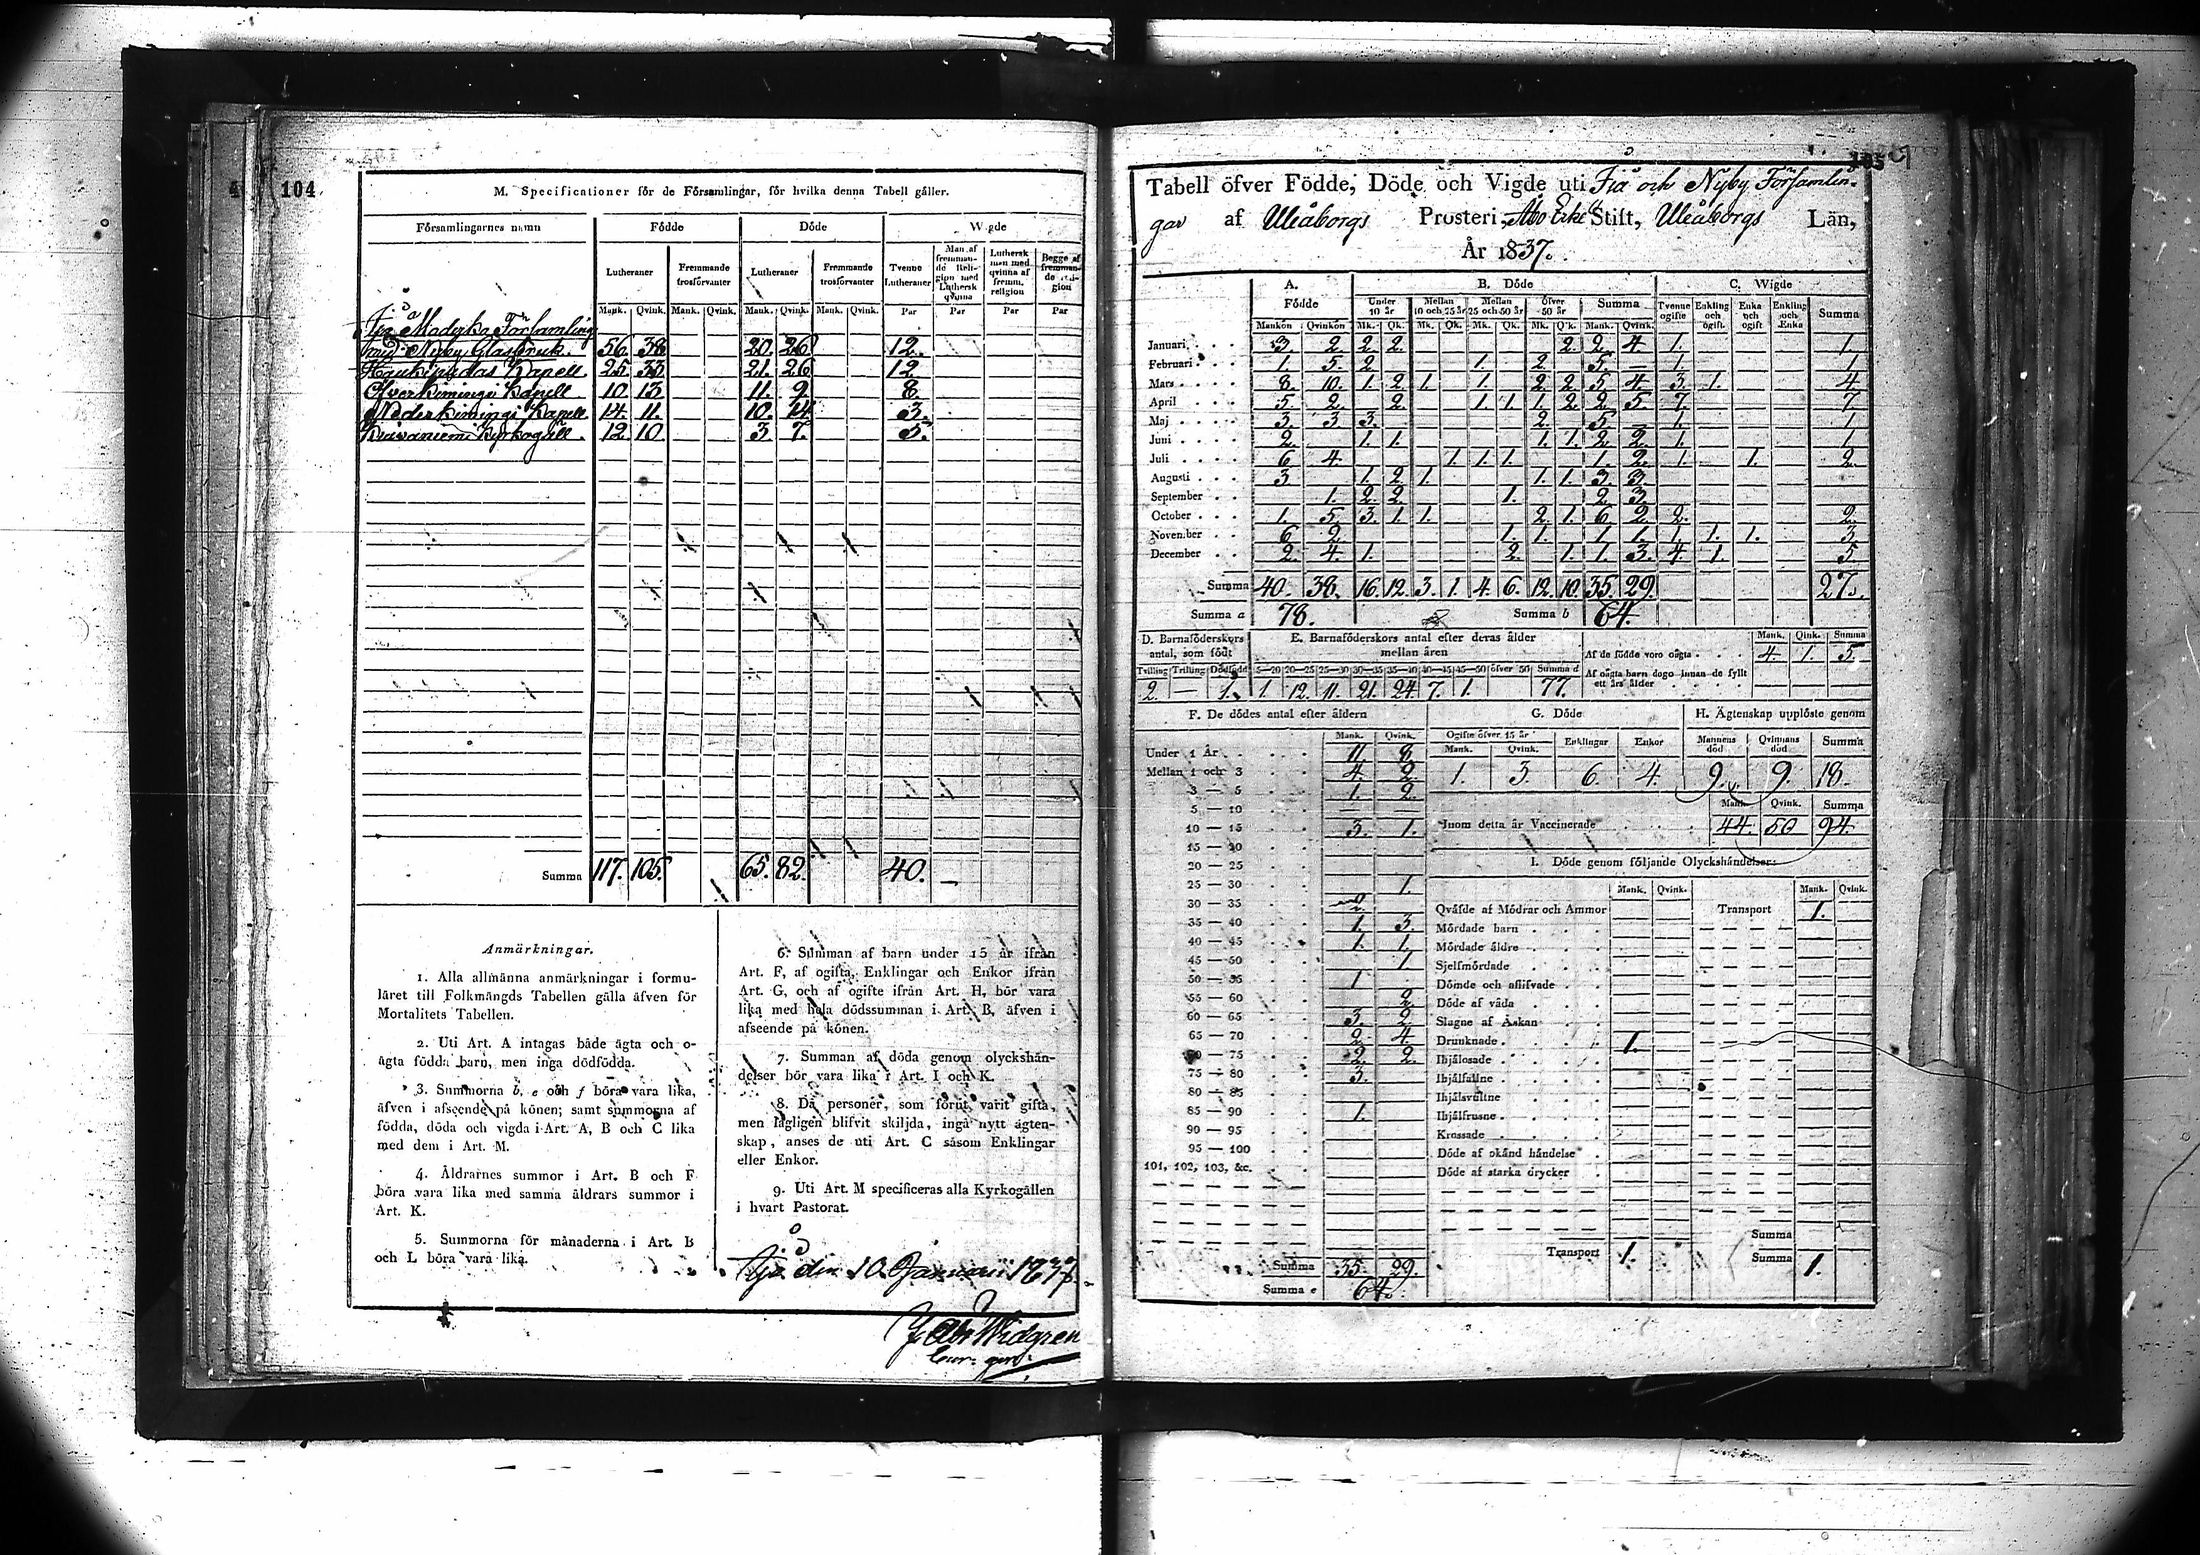 104
M. Specificationer för de Församlingar, för hvilka denna Tabell gäller.
Församlingarnes namn Födde Döde Wigde
Lutheraner Fremmande trosförvanter Lutheraner Fremmande trosförvanter Tvenne Lutheraner Man af fremmande Religion med Luthersk qvinna Luthersk man med qvinna af fremm. religion Begge af fremmande religion
Mank. Qvink. Mank. Qvink. Mank. Qvink. Mank. Qvink. Par Par Par Par
Ijå Moderkp Församling
med Nyby Glasbruk. 56. 38. 20. 26. 12.
Haukipudas Kapell. 25. 33. 21. 26. 12.
Öfverkimingi Kapell 10. 13. 11. 9. 8.
Nederkimingi Kapell 14. 11. 10. 14. 3.
Kuivaniemi Kyrkogäll. 12. 10. 3. 7. 5.
Summa 117. 105. 65. 82. 40. —
Anmärkningar.
1. Alla allmänna anmärkningar i formu-
läret till Folkmängds Tabellen gälla äfven för
Mortalitets Tabellen.
2. Uti Art. A intagas både ägta och o-
ägta födda barn, men inga dödfödda.
3. Summorna b, e och f böra vara lika,
äfven i afseende på könen; samt summorna af
födda, döda och vigda i Art. A, B och C lika
med dem i Art. M.
4. Åldrarnes summor i Art. B och F
böra vara lika med samma åldrars summor i
Art. K.
5. Summorna för månaderna i Art. B
och L böra vara lika.
6. Summan af barn under 15 år ifrån
Art. F, af ogifta, Enklingar och Enkor ifrån
Art. G, och af ogifte ifrån Art. H, bör vara
lika med hela dödssumman i Art. B, äfven i
afseende på könen.
7. Summan af döda genom olyckshän-
delser bör vara lika i Art. I och K.
8. Då personer, som förut varit gifta,
men lagligen blifvit skiljda, ingå nytt ägten-
skap, anses de uti Art. C såsom Enklingar
eller Enkor.
9. Uti Art. M specificeras alla Kyrkogällen
i hvart Pastorat.
Ijå den 10 Januarii 1837.
Widgren
105
Tabell öfver Födde, Döde och Vigde uti Ijå och Nyby Församlin-
gar af Uleåborgs Prosteri, Åbo Erke Stift, Uleåborgs Län,
År 1837.
A. Födde B. Döde C. Wigde
Under 10 år Mellan 10 och 25 år Mellan 25 och 50 år Öfver 50 år Summa Tvenne ogifte Enkling och ogift Enka och ogift Enkling och Enka Summa
Mankön Qvinkön Mk. Qk. Mk. Qk. Mk. Qk. Mk. Qk. Mank. Qvink.
Januari 3. 2. 2. 2. 2. 2. 4. 1. 1.
Februari 1. 5. 2. 1. 2. 5. — 1. 1.
Mars 8. 10. 1. 2. 1. 1. 2. 2. 5. 4. 3. 1. 4.
April 5. 2. 2. 1. 1. 1. 2. 2. 5. 7. 7.
Maj 3. 3. 3. 2. 5. — 1. 1.
Juni 2. 1. 1. 1. 1. 2. 2. 1. 1.
Juli 6. 4. 1. 1. 1. 1. 2. 1. 1. 2.
Augusti 3. 1. 2. 1. 1. 1. 3. 3.
September 1. 2. 2. 1. 2. 3.
October 1. 5. 3. 1. 1. 2. 1. 6. 2. 2. 2.
November 6. 2. 1. 1. 1. 1. 1. 1. 1. 3.
December 2. 4. 1. 2. 1. 1. 3. 4. 1. 5.
Summa 40. 38. 16. 12. 3. 1. 4. 6. 12. 10. 35. 29. 27.
Summa a 78. Summa b 64.
D. Barnaföderskors antal, som födt E. Barnaföderskors antal efter deras ålder mellan åren Mank. Qink. Summa
Af de födde voro oägta 4. 1. 5.
Tvilling Trilling Dödfödd 15—20 20—25 25—30 30—35 35—40 40—45 45—50 öfver 50 Summa d Af oägta barn dogo innan de fyllt ett års ålder
2. — 1. 1. 12. 11. 21. 24. 7. 1. 77.
F. De dödes antal efter åldern G. Döde H. Ägtenskap upplöste genom
Mank. Qvink. Ogifte öfver 15 år Enklingar Enkor Mannens död Qvinnans död Summa
Mank. Qvink.
Under 1 År 11. 8.
Mellan 1 och 3 4. 2. 1. 3. 6. 4. 9. 9. 18.
3 — 5 1. 2.
5 — 10 Mank. Qvink. Summa
10 — 15 3. 1. Inom detta år Vaccinerade 44. 50. 94.
15 — 20
20 — 25 I. Döde genom följande Olyckshändelser:
25 — 30 1. Mank. Qvink. Mank. Qvink.
30 — 35 2. Qväfde af Mödrar och Ammor Transport 1.
35 — 40 1. 3. Mördade barn
40 — 45 1. 1. Mördade äldre
45 — 50 1. Sjelfmördade
50 — 55 1 Dömde och aflifvade
55 — 60 2. Döde af våda
60 — 65 3. 2. Slagne af Åskan
65 — 70 2. 4. Drunknade 1.
70 — 75 2. 2. Ihjälosade
75 — 80 3. Ihjälfallne
80 — 85 Ihjälsvultne
85 — 90 1. Ihjälfrusne
90 — 95 Krossade
95 — 100 Döde af okänd händelse
101, 102, 103, &c. Döde af starka drycker
Summa
Transport 1. Summa 1.
Summa 35. 29.
Summa e 64.